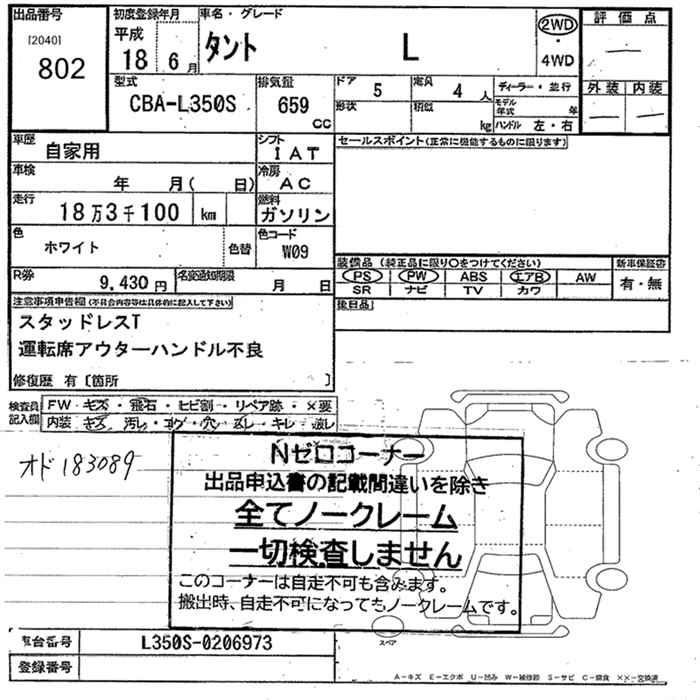 出品番号
[2040]
802
初度登録年月
平成
18 6 月
車名・グレード
タント L
2WD
・
4WD
評価点
—
外装 内装
— —
型式
CBA-L350S
排気量
659
CC
ドア 5
定員 4 人
形状
積載 kg
ディーラー・並行
モデル年式 年
ハンドル 左・右
車歴 自家用
シフト IAT
セールスポイント(正常に機能するものに限ります)
車検 年 月( 日)
冷房 AC
走行 18万3千100 km
燃料 ガソリン
色 ホワイト 色替
色コード W09
装備品 (純正品に限り〇をつけてください)
新車保証書
PS PW ABS エアB AW
有・無
SR ナビ TV カワ
R券 9,430 円
名変通知期限 月 日
後日品
注意事項申告欄(不具合内容等は具体的に記入して下さい)
スタッドレスT
運転席アウターハンドル不良
修復歴 有〔箇所 〕
検査員記入欄
FW キズ・飛石・ヒビ割・リペア跡・×要
内装 キズ 汚レ・コゲ・穴
オド 183089
Nゼロコーナー
出品申込書の記載間違いを除き
全てノークレーム
一切検査しません
このコーナーは自走不可も含みます。
搬出時、自走不可になってもノークレームです。
スペア
車台番号 L350S-0206973
登録番号
A-キズ E-エクボ U-凹み W-補修跡 S-サビ C-腐食 ××-交換済